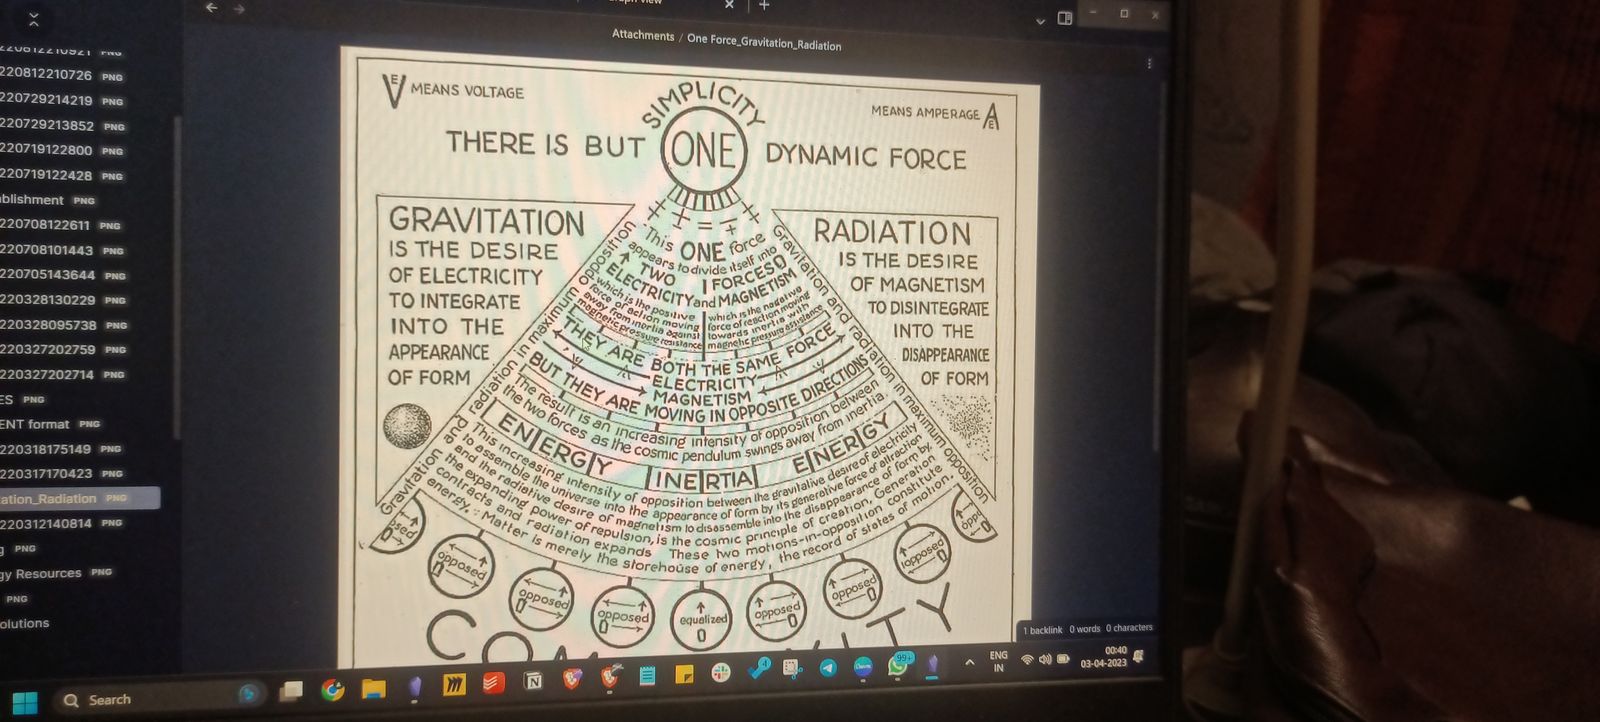 Attachments / One Force_Gravitation_Radiation
220812210726 PNG
220729214219 PNG
220729213852 PNG
220719122800 PNG
220719122428 PNG
ablishment PNG
220708122611 PNG
220708101443 PNG
220705143644 PNG
220328130229 PNG
220328095738 PNG
220327202759 PNG
220327202714 PNG
ES PNG
ENT format PNG
220318175149 PNG
220317170423 PNG
tation_Radiation PNG
220312140814 PNG
g PNG
gy Resources PNG
PNG
olutions
EV MEANS VOLTAGE
MEANS AMPERAGE AE
SIMPLICITY
THERE IS BUT ONE DYNAMIC FORCE
GRAVITATION
IS THE DESIRE
OF ELECTRICITY
TO INTEGRATE
INTO THE
APPEARANCE
OF FORM
RADIATION
IS THE DESIRE
OF MAGNETISM
TO DISINTEGRATE
INTO THE
DISAPPEARANCE
OF FORM
Gravitation and radiation in maximum opposition
Gravitation and radiation in maximum opposition
+ + = - +
This ONE force
appears to divide itself into
TWO FORCES
ELECTRICITY and MAGNETISM
which is the positive
force of action moving
away from inertia against
magnetic pressure resistance
which is the negative
force of reaction moving
towards inertia with
magnetic pressure assistance
THEY ARE BOTH THE SAME FORCE
ELECTRICITY
MAGNETISM
BUT THEY ARE MOVING IN OPPOSITE DIRECTIONS
The result is an increasing intensity of opposition between
the two forces as the cosmic pendulum swings away from inertia
ENERGY INERTIA ENERGY
This increasing intensity of opposition between the gravitative desire of electricity
to assemble the universe into the appearance of form by its generative force of attraction
and the radiative desire of magnetism to disassemble into the disappearance of form by
the expanding power of repulsion, is the cosmic principle of creation. Generation
contracts and radiation expands These two motions-in-opposition constitute
energy. ∴ Matter is merely the storehouse of energy, the record of states of motion.
posed 0
opposed 0
opposed 0
opposed 0
equalized 0
opposed 0
opposed 0
opposed 0
oppo 0
1 backlink 0 words 0 characters
Search
99+
ENG
IN
00:40
03-04-2023